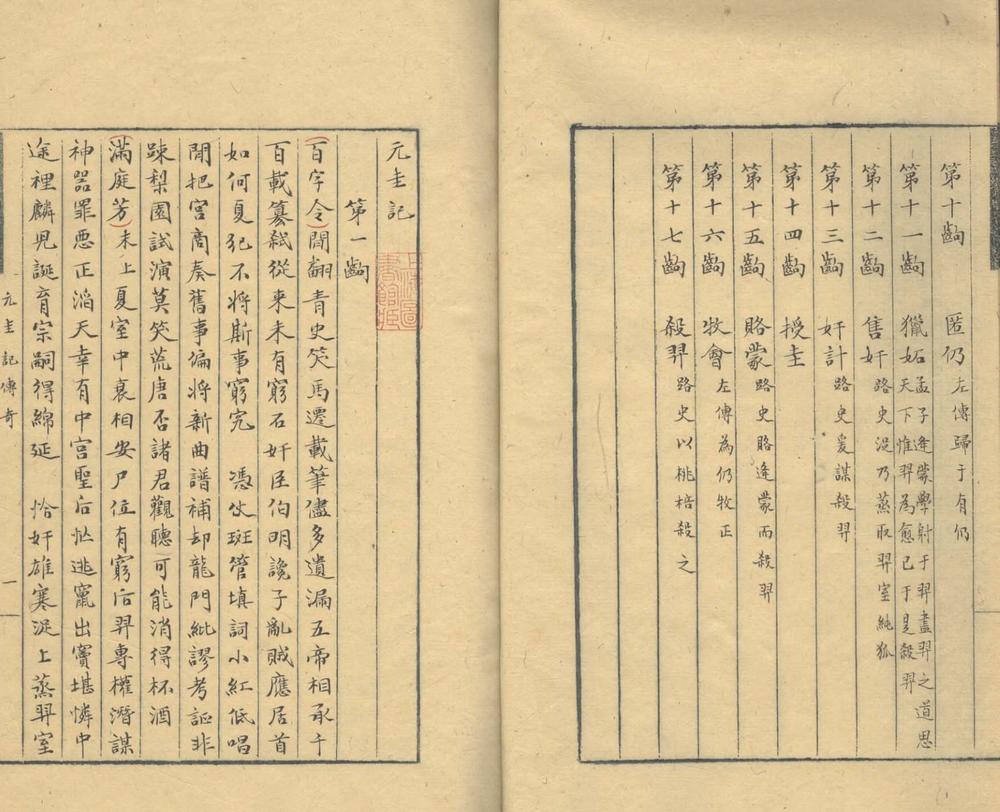 第十齣 匿仍 左傳歸于有仍
第十一齣 獵妬 孟子逄蒙學射于羿盡羿之道思天下惟羿為愈已于是殺羿
第十二齣 售奸 路史浞乃蒸取羿室純狐
第十三齣 奸計 路史爰謀殺羿
第十四齣 授圭
第十五齣 賂蒙 路史賂逄蒙而殺羿
第十六齣 牧會 左傳為仍牧正
第十七齣 殺羿 路史以桃棓殺之
元圭記
第一齣
(百字令)閒翻青史笑馬遷載筆儘多遺漏五帝相承千
百載篡弒從來未有窮石奸臣伯明讒子亂賊應居首
如何夏紀不將斯事窮究 憑仗斑管填詞小紅低唱
閒把宮商奏舊事偏將新曲譜補却龍門紕謬考証非
踈梨園試演莫笑荒唐否諸君觀聽可能消得杯酒
(滿庭芳)末上夏室中衰相安尸位有窮后羿專權潛謀
神器罪惡正滔天幸有中宮聖后忙逃竄出竇堪憐中
途裡麟兒誕育宗嗣得綿延 恰奸雄寒浞上蒸羿室
元圭記傳奇
一